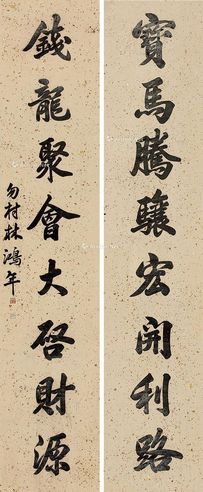 寶馬騰驤宏開利路
錢龍聚會大啓財源
勿村林鴻年